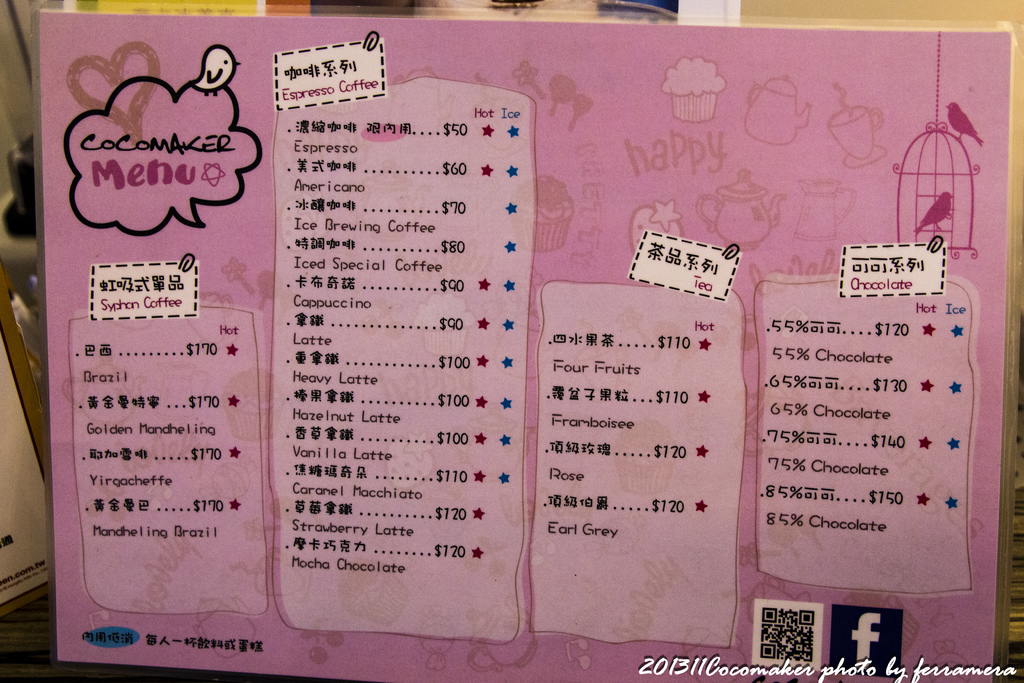 COCOMAKER
Menu
虹吸式單品
Syphon Coffee
Hot
.巴西.........$170
Brazil
.黃金曼特寧...$170
Golden Mandheling
.耶加雪啡.....$170
Yirgacheffe
.黃金曼巴.....$170
Mandheling Brazil
內用低消 每人一杯飲料或蛋糕
咖啡系列
Espresso Coffee
Hot Ice
.濃縮咖啡 限內用....$50
Espresso
.美式咖啡..........$60
Americano
.冰釀咖啡..........$70
Ice Brewing Coffee
.特調咖啡..........$80
Iced Special Coffee
.卡布奇諾..........$90
Cappuccino
.拿鐵..............$90
Latte
.重拿鐵............$100
Heavy Latte
.榛果拿鐵..........$100
Hazelnut Latte
.香草拿鐵..........$100
Vanilla Latte
.焦糖瑪奇朵........$110
Caramel Macchiato
.草莓拿鐵..........$120
Strawberry Latte
.摩卡巧克力........$120
Mocha Chocolate
happy
茶品系列
Tea
Hot
.四水果茶.....$110
Four Fruits
.覆盆子果粒...$110
Framboisee
.頂級玫瑰.....$120
Rose
.頂級伯爵.....$120
Earl Grey
可可系列
Chocolate
Hot Ice
.55%可可....$120
55% Chocolate
.65%可可....$130
65% Chocolate
.75%可可....$140
75% Chocolate
.85%可可....$150
85% Chocolate
f
201311Cocomaker photo by ferramera